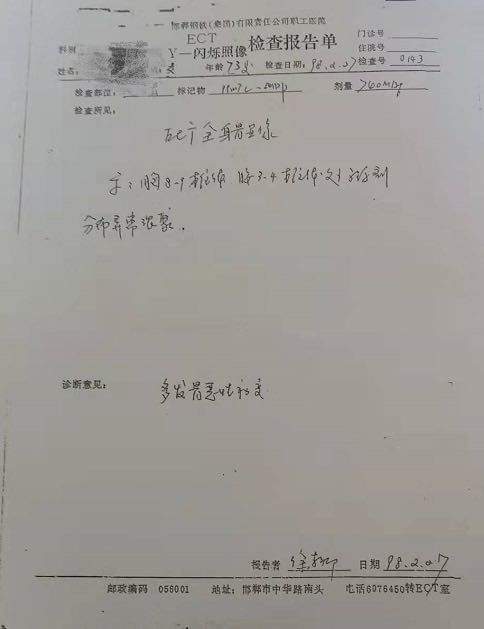 邯郸钢铁(集团)有限责任公司职工医院
ECT
γ—闪烁照像 检查报告单
门诊号
住院号
科别
姓名: 年龄 73岁 检查日期: 98.2.27 检查号 0143
检查部位: 标记物 剂量 740MBq
检查所见:
ECT全身骨显像
示: 胸8-9椎体 腰3-4椎体处放射
分布异常浓聚.
诊断意见: 多发骨恶性病变
报告者 日期 98.2.27
邮政编码 056001 地址: 邯郸市中华路南头 电话6076450转ECT室